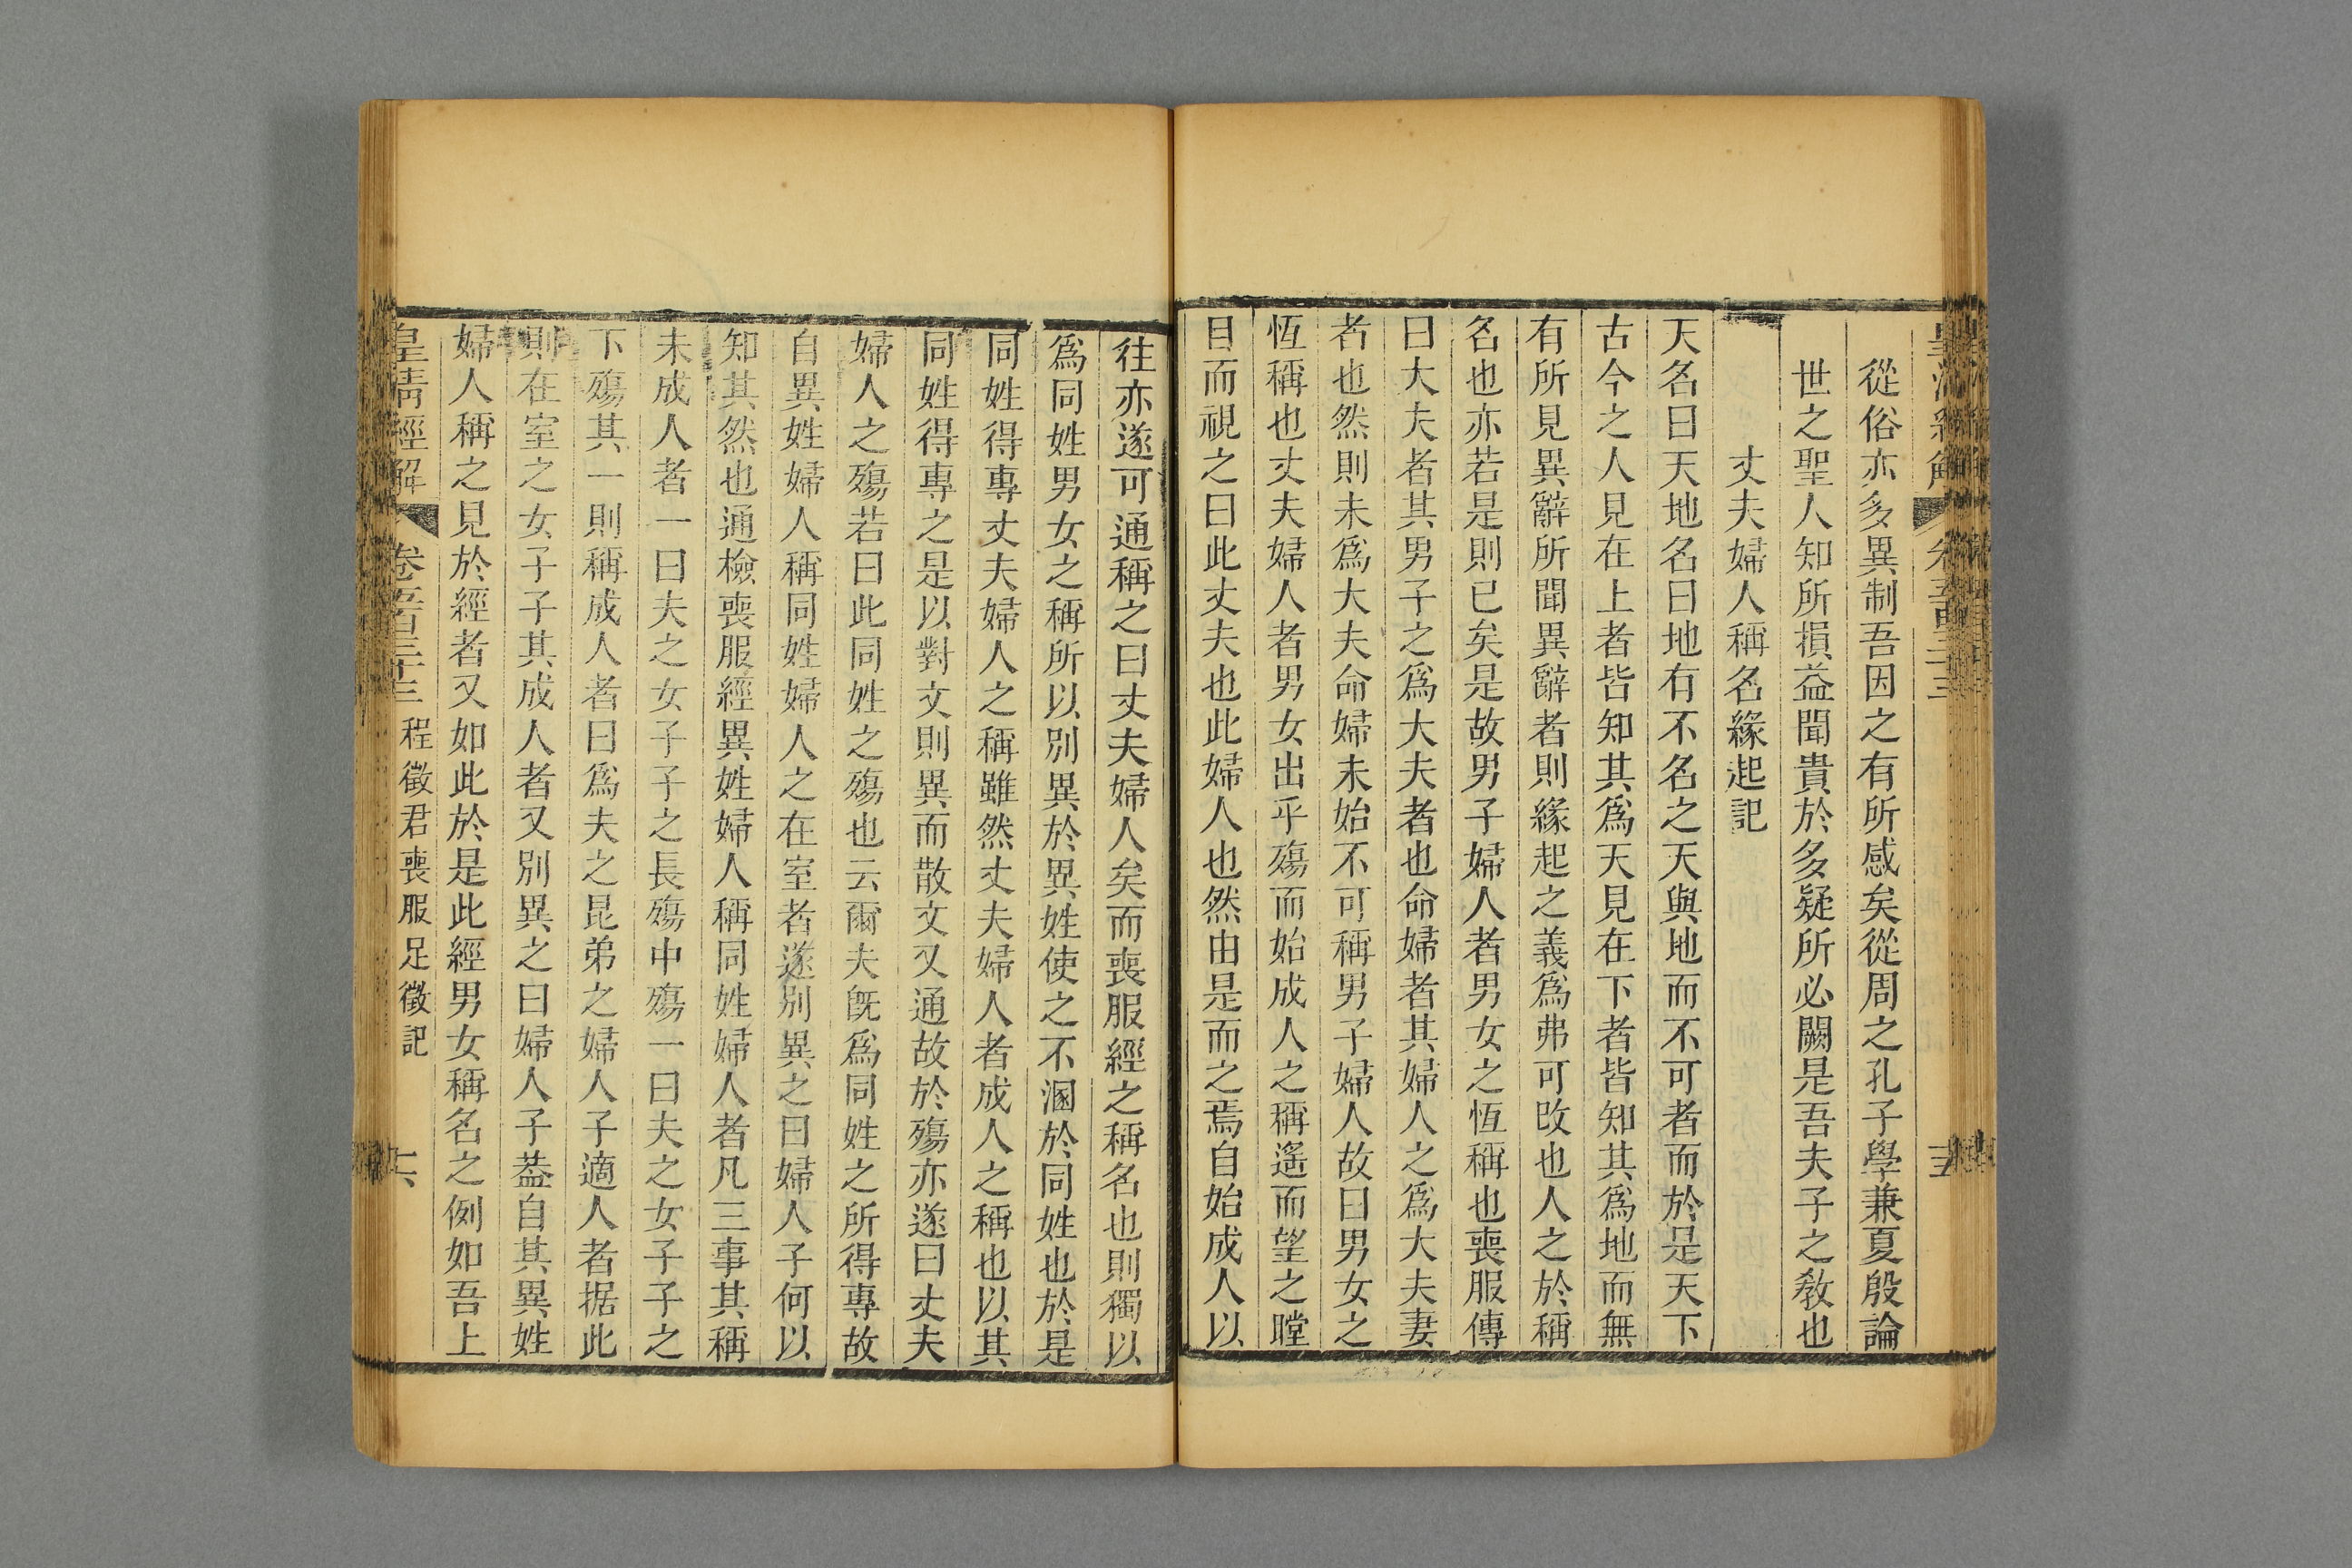 從俗亦多異制吾因之有所感矣從周之孔子學兼夏殷論
世之聖人知所損益聞貴於多疑所必闕是吾夫子之教也
丈夫婦人稱名緣起記
天名曰天地名曰地有不名之天與地而不可者而於是天下
古今之人見在上者皆知其爲天見在下者皆知其爲地而無
有所見異辭所聞異辭者則緣起之義爲弗可改也人之於稱
名也亦若是則已矣是故男子婦人者男女之恆稱也喪服傳
曰大夫者其男子之爲大夫者也命婦者其婦人之爲大夫妻
者也然則未爲大夫命婦未始不可稱男子婦人故曰男女之
恆稱也丈夫婦人者男女出乎殤而始成人之稱遙而望之瞠
目而視之曰此丈夫也此婦人也然由是而之焉自始成人以
往亦遂可通稱之曰丈夫婦人矣而喪服經之稱名也則獨以
爲同姓男女之稱所以別異於異姓使之不溷於同姓也於是
同姓得專丈夫婦人之稱雖然丈夫婦人者成人之稱也以其
同姓得專之是以對文則異而散文又通故於殤亦遂曰丈夫
婦人之殤若曰此同姓之殤也云爾夫旣爲同姓之所得專故
自異姓婦人稱同姓婦人之在室者遂別異之曰婦人子何以
知其然也通檢喪服經異姓婦人稱同姓婦人者凡三事其稱
未成人者一曰夫之女子子之長殤中殤一曰夫之女子子之
下殤其一則稱成人者曰爲夫之昆弟之婦人子適人者据此
則在室之女子子其成人者又別異之曰婦人子葢自其異姓
婦人稱之見於經者又如此於是此經男女稱名之例如吾上
皇清經解 卷五百三十三 程徵君喪服足徵記 六